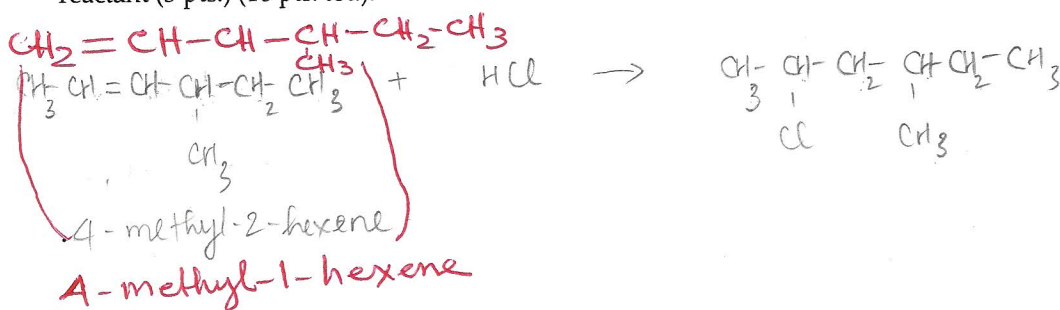 reactant (5 pts.) (10 pts. tot.).
CH2=CH-CH-CH-CH2-CH3
CH3
CH3-CH=CH-CH-CH2-CH3 + HCl → CH3-CH-CH2-CH-CH2-CH3
CH3
Cl CH3
4-methyl-2-hexene
4-methyl-1-hexene